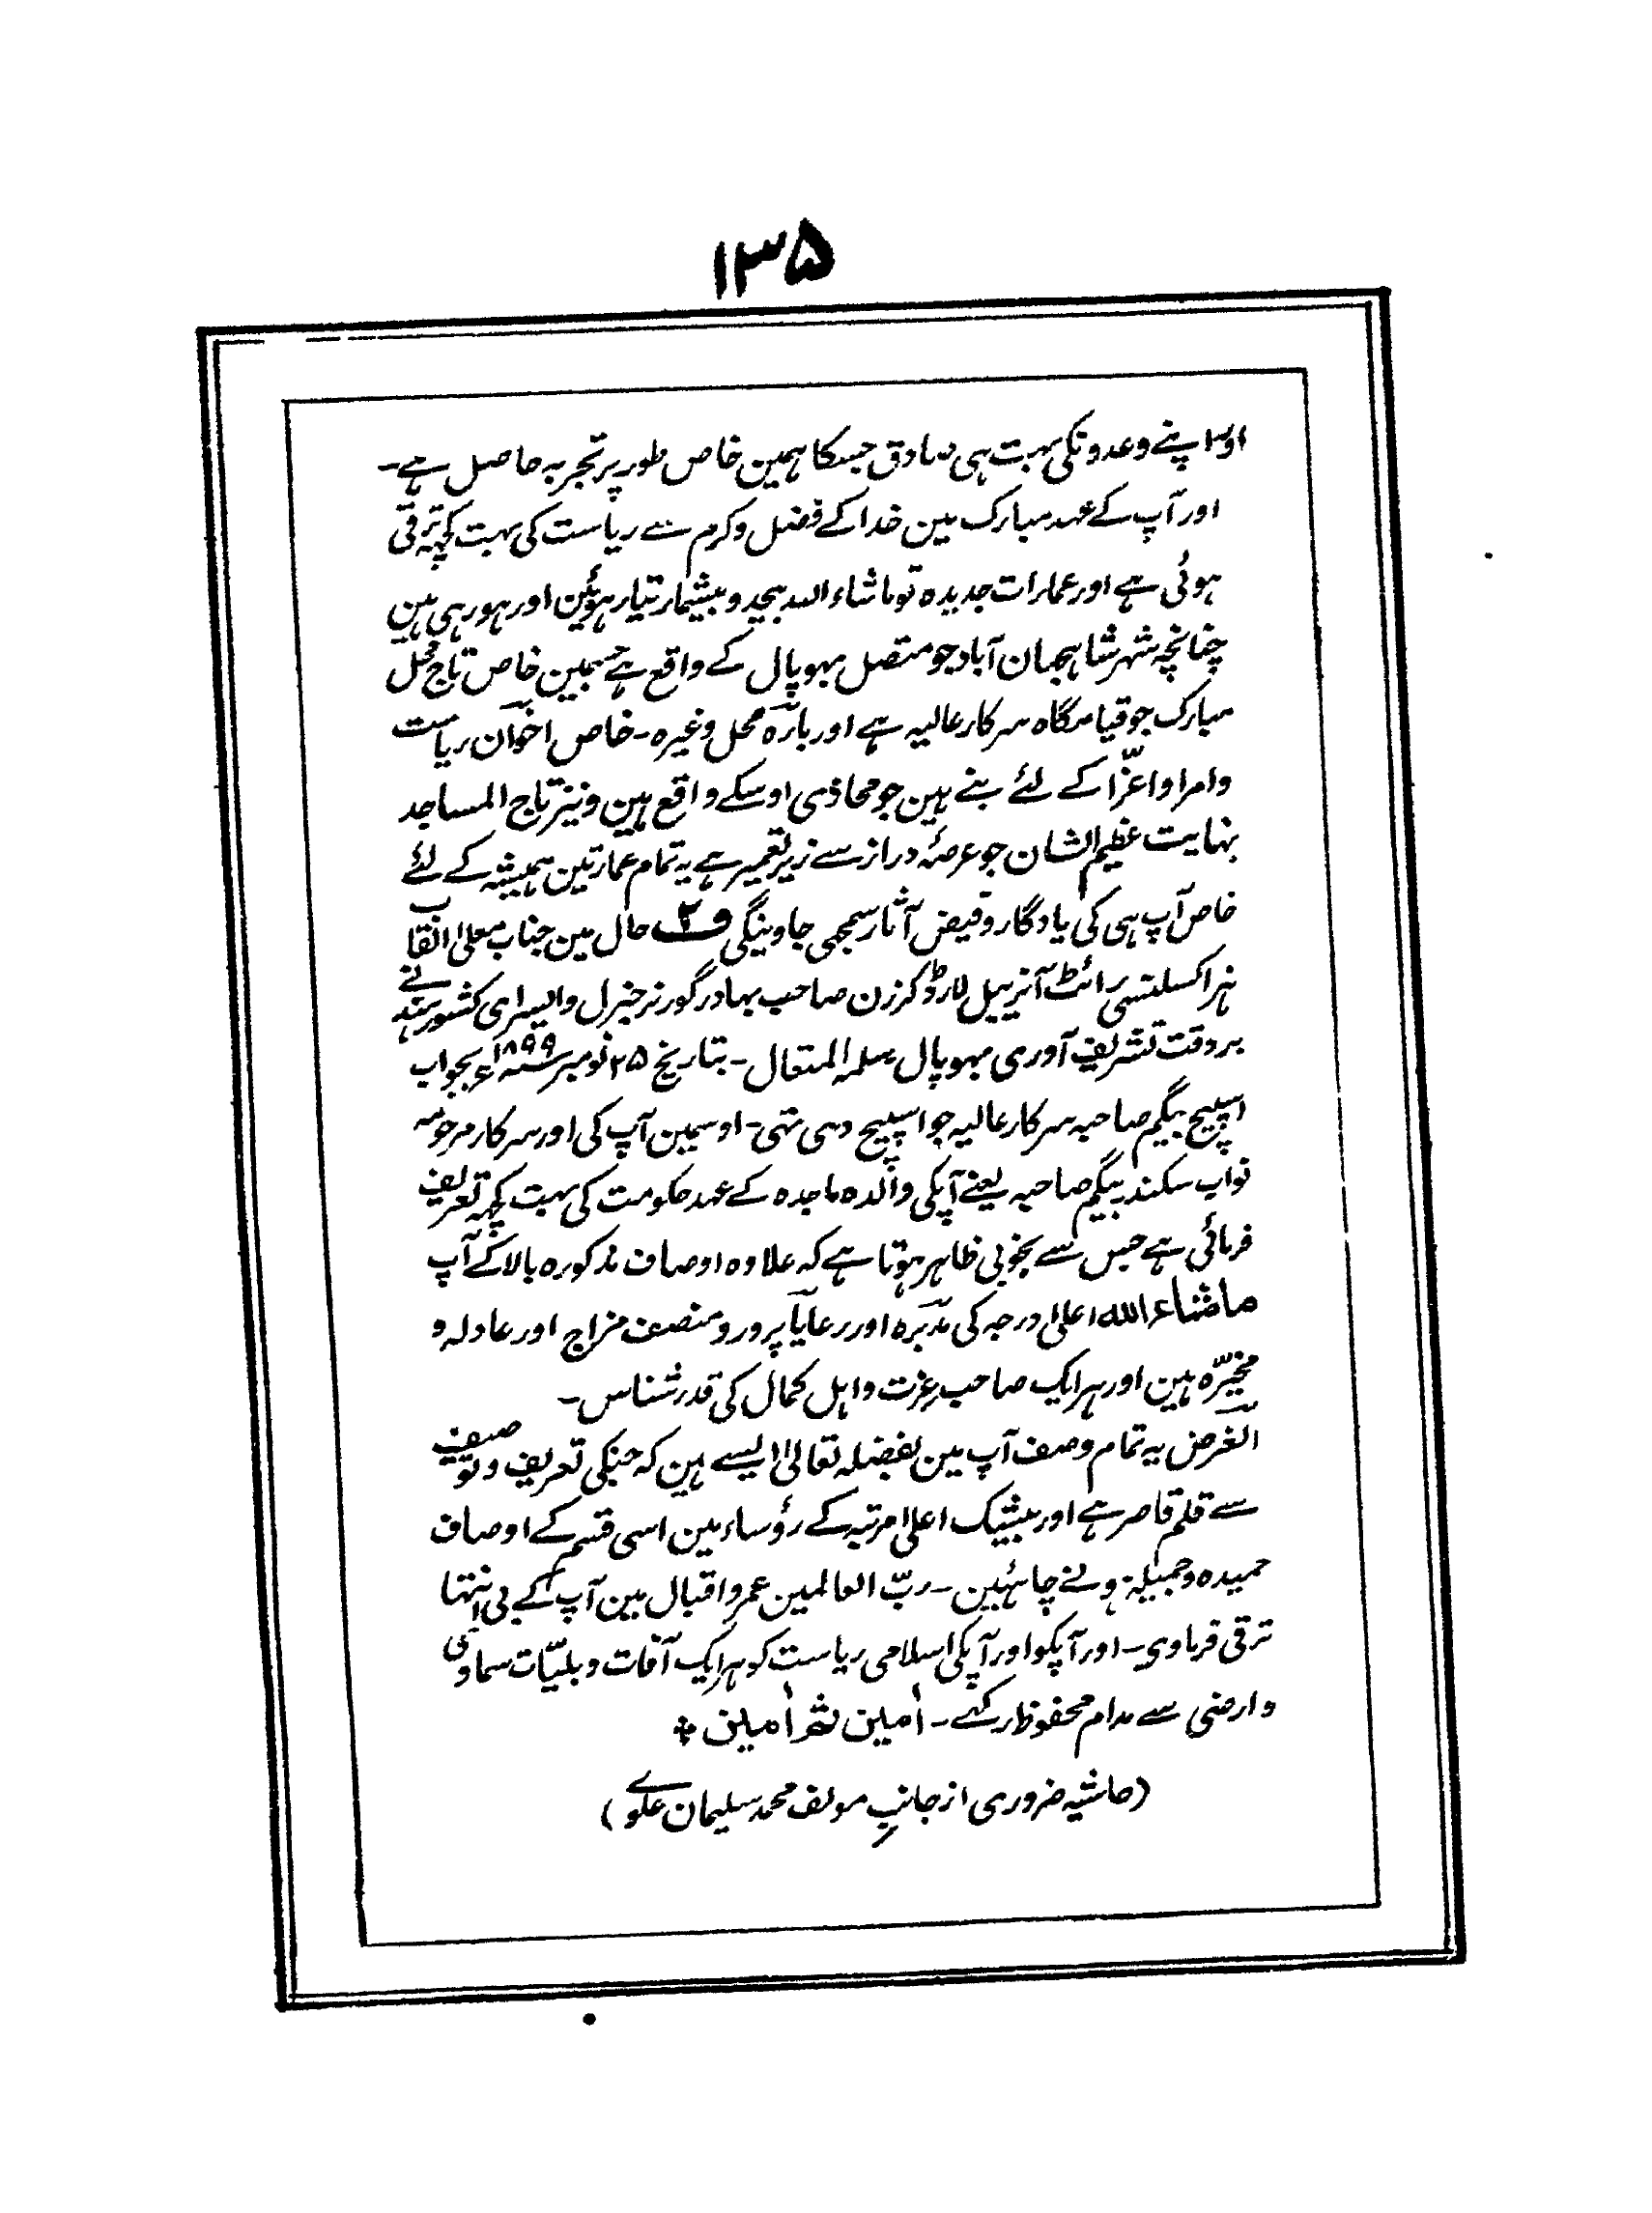 ۱۳۵
اور اپنے وعدونکی بہت ہی صادق جسکا ہمین خاص طور پر تجربہ حاصل ہے۔
اور آپ کے عہد مبارک مین خدا کے فضل و کرم سے ریاست کی بہت کچہہ ترقی
ہوئی ہے اور عمارات جدیدہ تو ماشاء اللہ بیحد و بیشمار تیار ہوئین اور ہورہی ہین
چنانچہ شہر شاہجہان آباد جو متصل بہوپال کے واقع ہے جسمین خاص تاج محل
مبارک جو قیامگاہ سرکار عالیہ ہے اور بارہ محل وغیرہ۔ خاص اخوان ریاست
و امرا و اعزّا کے لئے بنے ہین جو محاذی اوسکے واقع ہین و نیز تاج المساجد
نہایت عظیم الشان جو عرصۂ دراز سے زیر تعمیر ہے یہ تمام عمارتین ہمیشہ کے لئے
خاص آپ ہی کی یادگار و فیض آثار سمجہی جاوینگی ف۲ حال مین جناب معلیٰ القاب
ہز اکسلنسی رائٹ آنریبل لارڈ کرزن صاحب بہادر گورنر جنرل وایسرای کشور ہند نے
بر وقت تشریف آوری بہوپال سلمہ المتعال۔ بتاریخ ۲۵ نومبر سنہ ۱۸۹۹ء بجواب
اسپیچ بیگم صاحبہ سرکار عالیہ جو اسپیچ دی تہی۔ اوسمین آپ کی اور سرکار مرحومہ
نواب سکندر بیگم صاحبہ یعنے آپکی والدہ ماجدہ کے عہد حکومت کی بہت کچہہ تعریف
فرمائی ہے جس سے بخوبی ظاہر ہوتا ہے کہ علاوہ اوصاف مذکورہ بالا کے آپ
ماشاء الله اعلیٰ درجہ کی مدبّرہ اور رعایا پرور و منصف مزاج اور عادلہ و
مخیّرہ ہین اور ہر ایک صاحب عزت و اہل کمال کی قدر شناس۔
الغرض یہ تمام وصف آپ مین بفضلہ تعالیٰ ایسے ہین کہ جنکی تعریف و توصیف
سے قلم قاصر ہے اور بیشک اعلیٰ مرتبہ کے رؤساء مین اسی قسم کے اوصاف
حمیدہ و جمیلہ ہونے چاہئین۔ ربّ العالمین عمر و اقبال مین آپ کے بی انتہا
ترقی فرماوی۔ اور آپکو اور آپکی اسلامی ریاست کو ہر ایک آفات و بلیّات سماوی
و ارضی سے مدام محفوظ رکہے۔ اٰمین ثم اٰمین *
(حاشیہ ضروری از جانبِ مولف محمد سلیمان علوے)